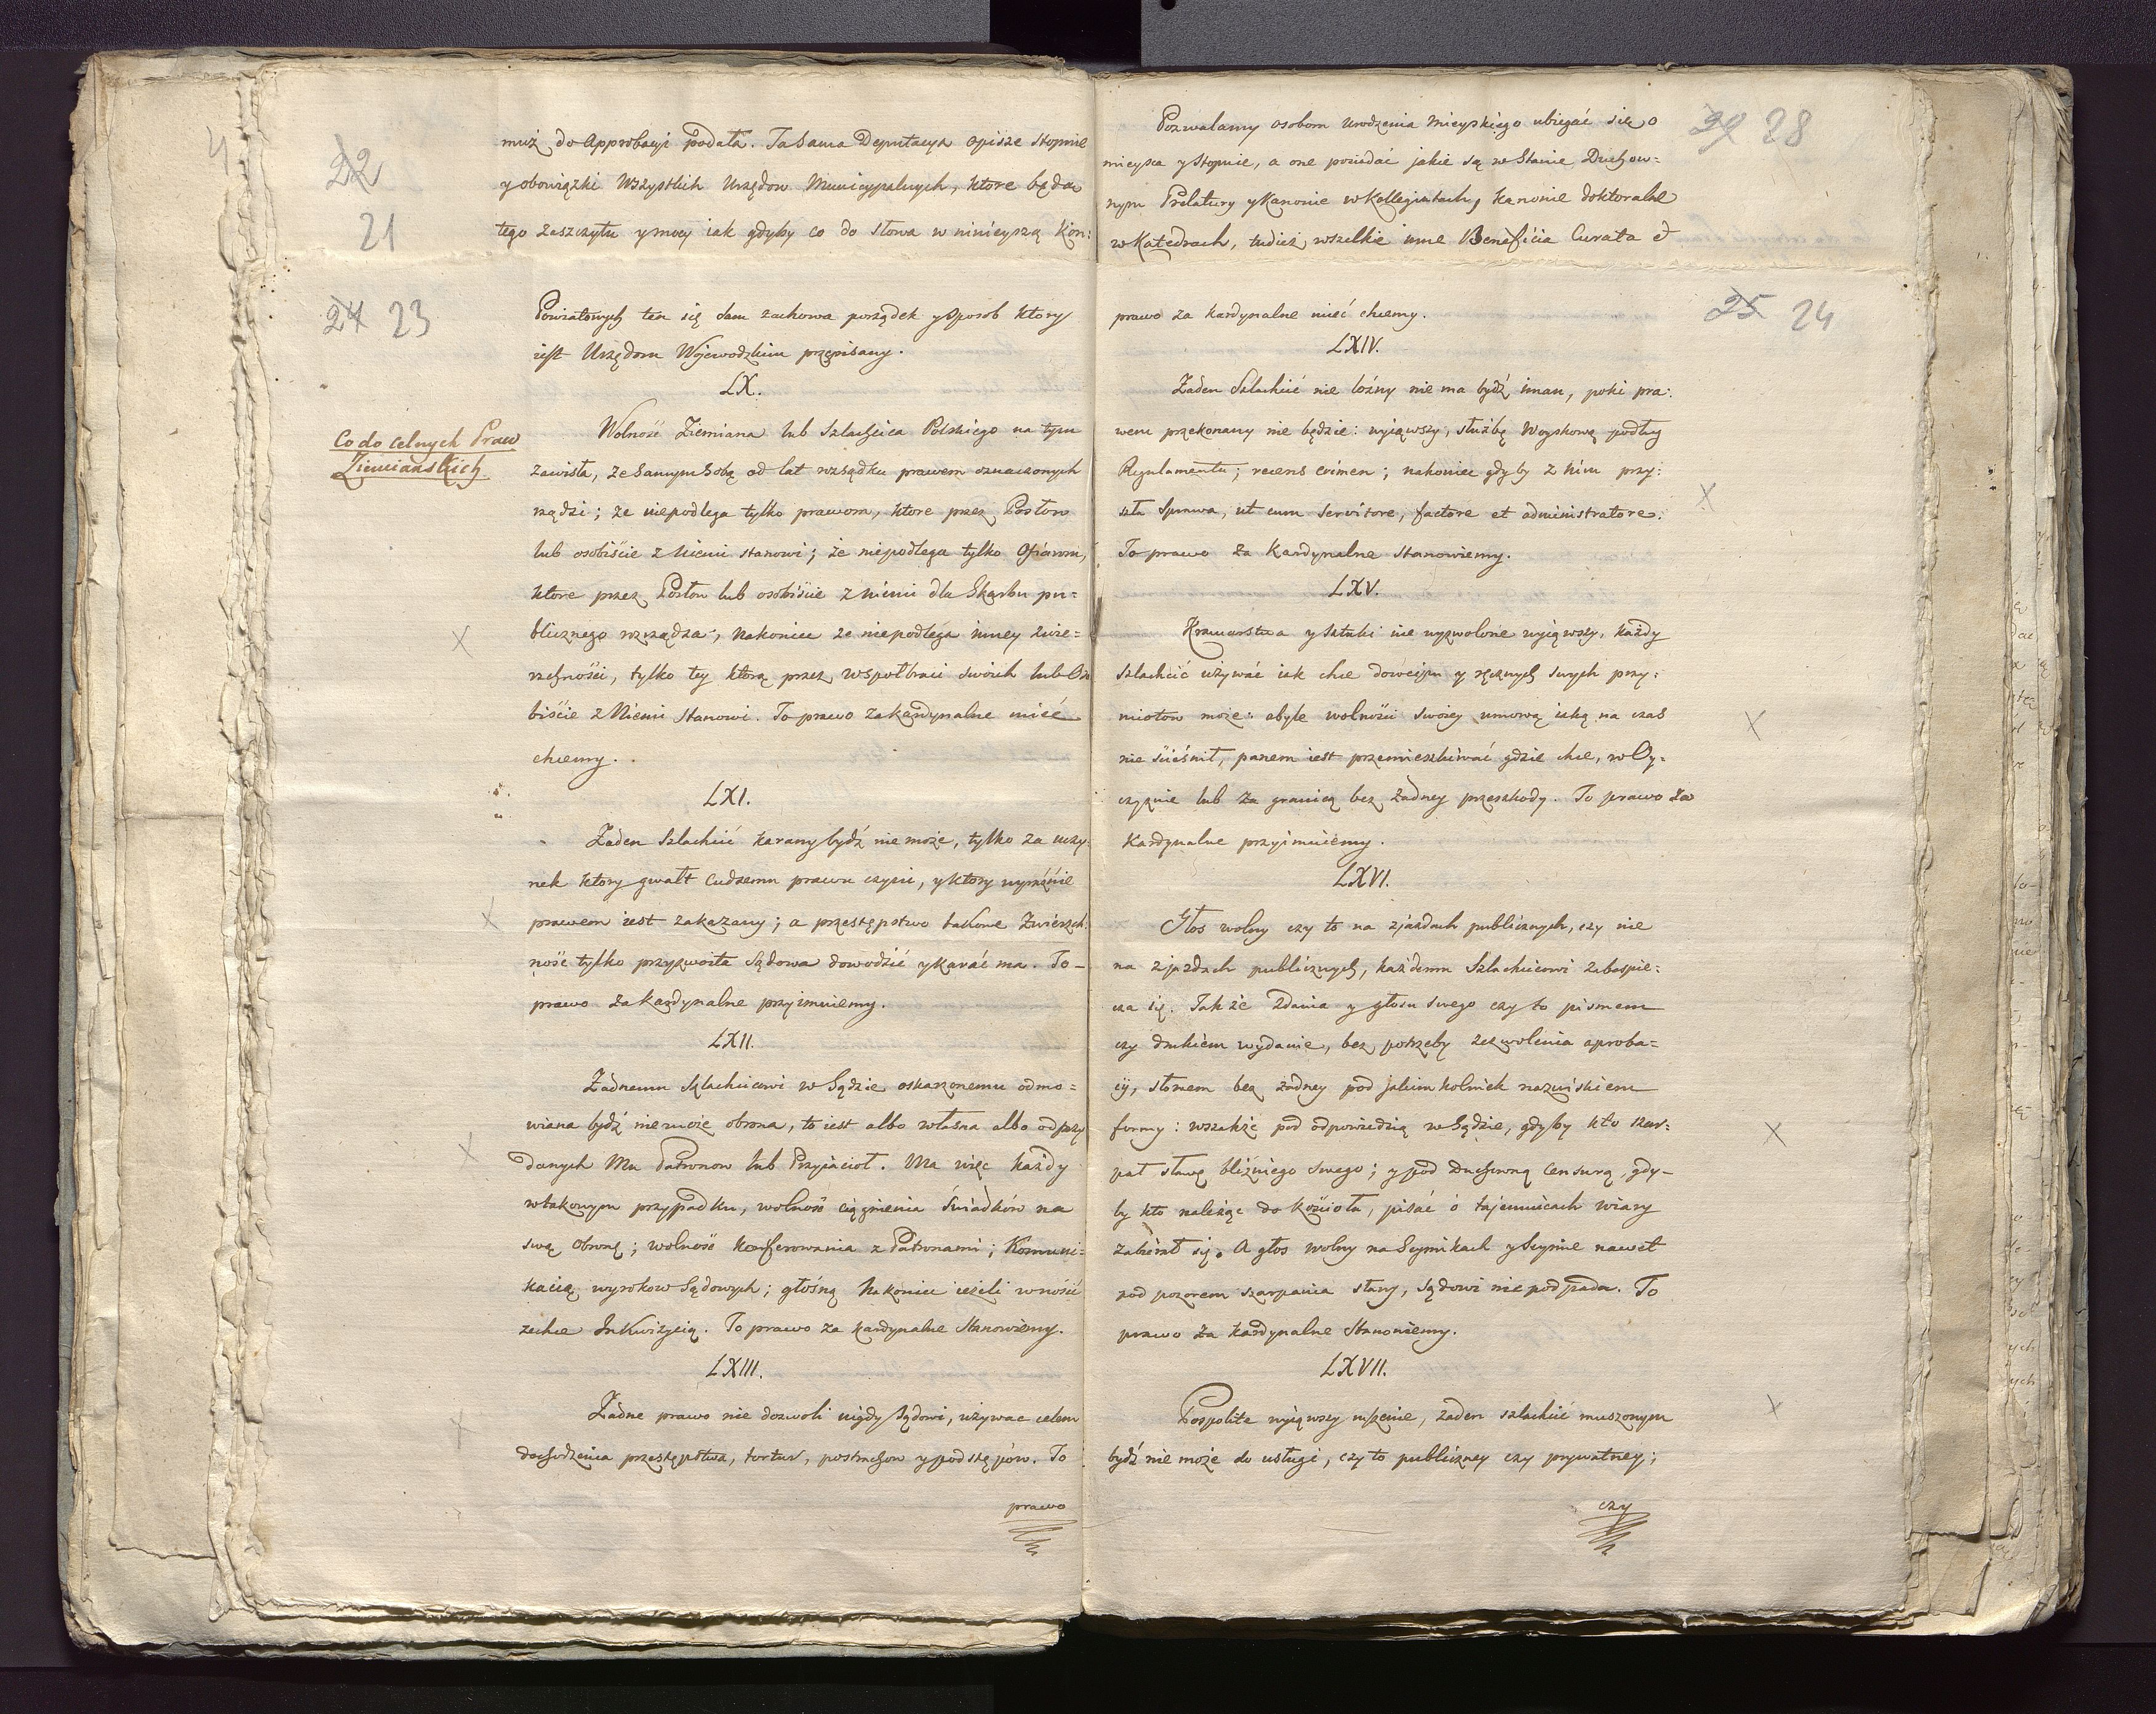 22
21
muż do Approbacyi podała. Ta Sama Deputacya opisze stopnie
y obowiązki Wszystkich Urzędow Municypalnych, ktore będą
tego zaszczytu y mocy iak gdyby co do słowa w ninieyszą Kon:
24 23
Powiatowych ten się Sam zachowa porządek y sposob ktory
iest Urzędom Wojewodzkim przepisany.
LX.
Co do celnych Praw
Ziemiańskich
Wolność Ziemiana lub Szlachcica Polskiego na tym
zawisła, że Samym Sobą od lat rozsądku prawem oznaczonych
rządzi; że niepodlega tylko prawom, ktore przez Posłow
lub osobiście z Niemi stanowi; że niepodlega tylko Ofiarom,
ktore przez Posłow lub osobiście z niemi dla Skarbu pu=
blicznego rozrządza; nakoniec że niepodlega inney zwie=
rzchności, tylko tey ktorą przez współbraci swoich lub Oso
biście z Niemi Stanowi. To prawo za kardynalne mieć
chcemy.
LXI.
Żaden Szlachcic karany bydź nie może, tylko za uczy
nek ktory gwałt cudzemu prawu czyni, y ktory wyraźnie
prawem iest zakazany; a przestępstwo takowe Zwierzch:
ność tylko przyzwoita Sądowa dowodzić y karać ma. To-
prawo za kardynalne przyimuiemy.
LXII.
Żadnemu Szlachcicowi w Sądzie oskarzonemu odmo=
wiana bydź nie może obrona, to iest albo własna albo od przy
danych Mu Patronow lub Przyiacioł. Ma więc każdy
w takowym przypadku, wolność ciągnienia Świadków na
swą obronę; wolność konferowania z Patronami; Komuni=
kacią wyrokow Sądowych; głośną Nakoniec ieżeli wnosić
zechce Inkwizycią. To prawo za kardynalne Stanowiemy.
LXIII.
Żadne prawo nie dozwoli nigdy Sądowi, używac celem
dochodzenia przestępstwa, tortur, postrachow y podstępów. To
prawo
Pozwalamy osobom Urodzenia Mieyskiego ubiegać się o
mieysca y Stopnie, a one posiadać jakie są w Stanie Duchow=
nym Prelatury y Kanonie w Kollegiatach, Kanonie doktoralne
w Katedrach, tudzież wszelkie inne Beneficia Curata et
29 28
25 24
prawo za kardynalne mieć chcemy.
LXIV.
Żaden Szlachcic nie lóźny nie ma bydź iman, poki pra:
wem przekonany nie będzie: wyiąwszy, służbę Woyskową podług
Regulamentu; recens crimen; nakoniec gdyby z Nim przy:
szła Sprawa, ut cum Servitore, factore et administratore.
To prawo za Kardynalne Stanowiemy.
LXV.
Kramarstwa y Sztuki nie wyzwolone wyiąwszy, każdy
szlachcic używać iak chce dowcipu y ręcznych swych przy:
miotow może: abyle wolności swoiey umową iaką na czas
nie ściéśnił, panem iest przemieszkiwać gdzie chce, w Oy=
czyznie lub za granicą bez żadney przeszkody. To prawo za
Kardynalne przyimuiemy.
LXVI.
Głos wolny czy to na zjazdach publicznych, czy nie
na zjazdach publicznych, każdemu Szlachcicowi zabespie:
cza się. Także zdania y głosu swego czy to pismem
czy drukiem wydanie, bez potrzeby zezwolenia aproba=
cij, słowem bez żadney pod jakim kolwiek nazwiskiem
formy: wszakże pod odpowiedzią w Sądzie, gdyby kto szar=
pał sławę bliźniego swego; y pod Duchowną Censurą, gdy-
by kto należąc do kościoła, pisać o tajemnicach wiary
zabierał się. A głos wolny na Seymikach y Seymie nawet
pod pozorem szarpania sławy, Sądowi nie podpada. To
prawo za kardynalne Stanowiemy.
LXVII.
Pospolite wyiąwszy ruszenie, żaden szlachcic muszonym
bydź nie może do usługi, czy to publiczney czy prywatney;
czy